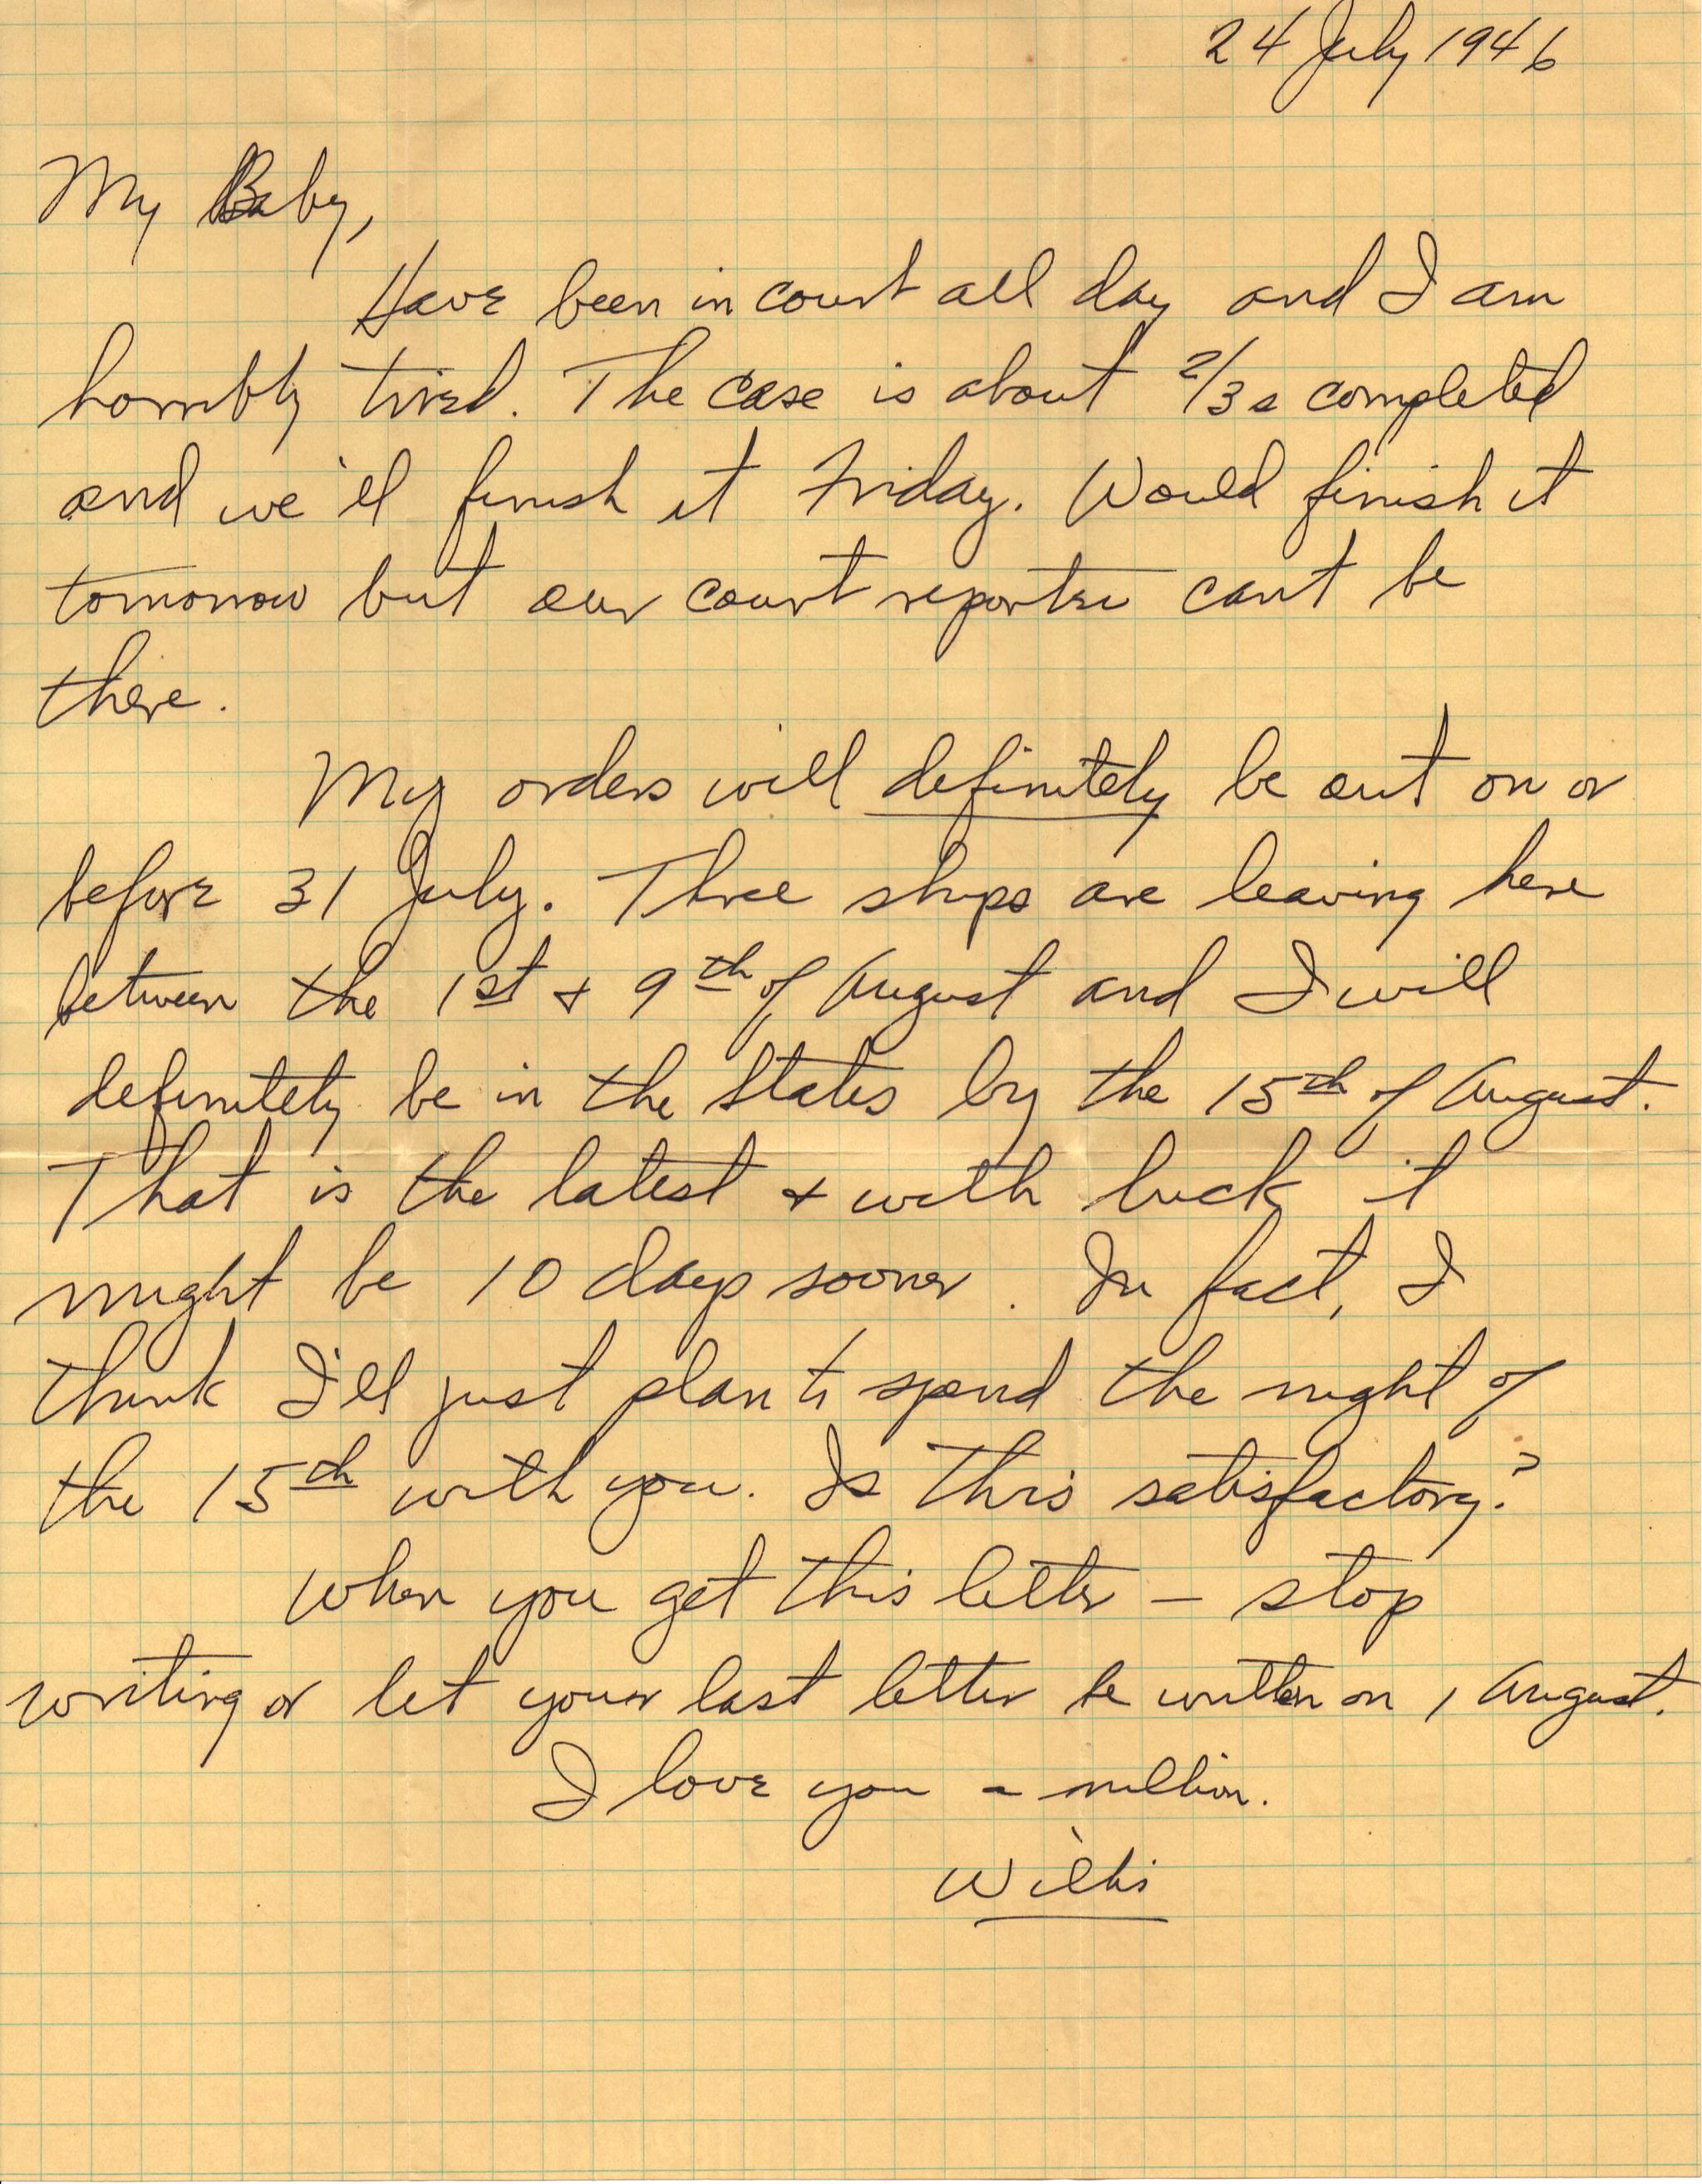 24 July 1946
My Baby,
Have been in court all day and I am
horribly tired. The case is about 2/3s completed
and we'll finish it Friday. Would finish it
tomorrow but our court reporter cant be
there.
My orders will definitely be out on or
before 31 July. Three ships are leaving here
between the 1st + 9th of August and I will
definitely be in the States by the 15th of August.
That is the latest + with luck it
might be 10 days sooner. In fact, I
think I'll just plan to spend the night of
the 15th with you. Is this satisfactory?
When you get this letter - stop
writing or let your last letter be written on 1 August.
I love you a million.
Willis